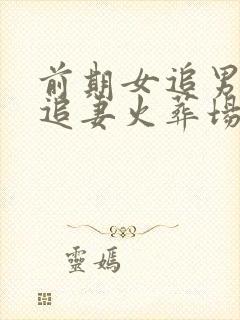 前期女追男
追妻火葬場
靈媽